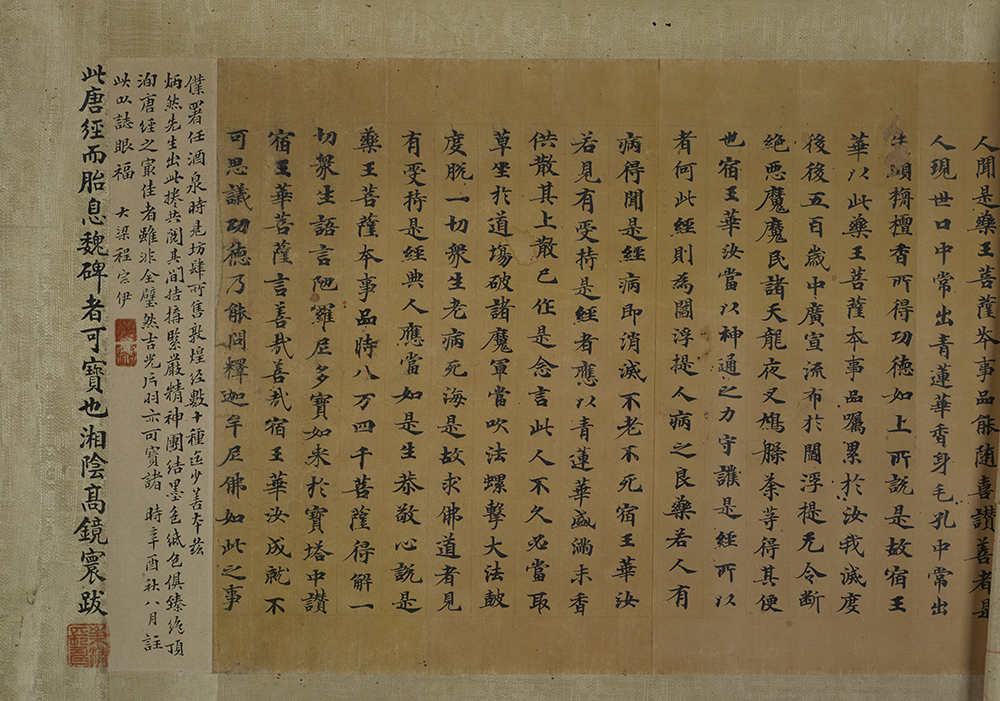 人聞是藥王菩薩本事品能随喜讃善者是
人現世口中常出青蓮華香身毛孔中常出
牛頭栴檀香所得功德如上所說是故宿王
華以此藥王菩薩本事品囑累於汝我滅度
後後五百歲中廣宣流布於閻浮提无令斷
絕惡魔魔民諸天龍夜叉鳩槃荼等得其便
也宿王華汝當以神通之力守護是經所以
者何此經則為閻浮提人病之良藥若人有
病得聞是經病即消滅不老不死宿王華汝
若見有受持是經者應以青蓮華盛滿末香
供散其上散已作是念言此人不久必當取
草坐於道場破諸魔軍當吹法螺擊大法皷
度脱一切衆生老病死海是故求佛道者見
有受持是經典人應當如是生恭敬心說是
藥王菩薩本事品時八万四千菩薩得解一
切衆生語言陁羅尼多寶如来於寶塔中讃
宿王華菩薩言善哉善哉宿王華汝成就不
可思議功德乃能問釋迦牟尼佛如此之事
僕署任酒泉時見坊肆所售敦煌經數十種迄少善本茲
炳然先生出此捲共閱其間結搆緊嚴精神團結墨色紙色俱臻絶頂
洵唐經之最佳者雖非全璧然吉光片羽亦可寶諸 時辛酉秋八月註
此以誌眼福 大梁程宗伊
此唐經而胎息魏碑者可寶也湘陰髙鏡寰跋